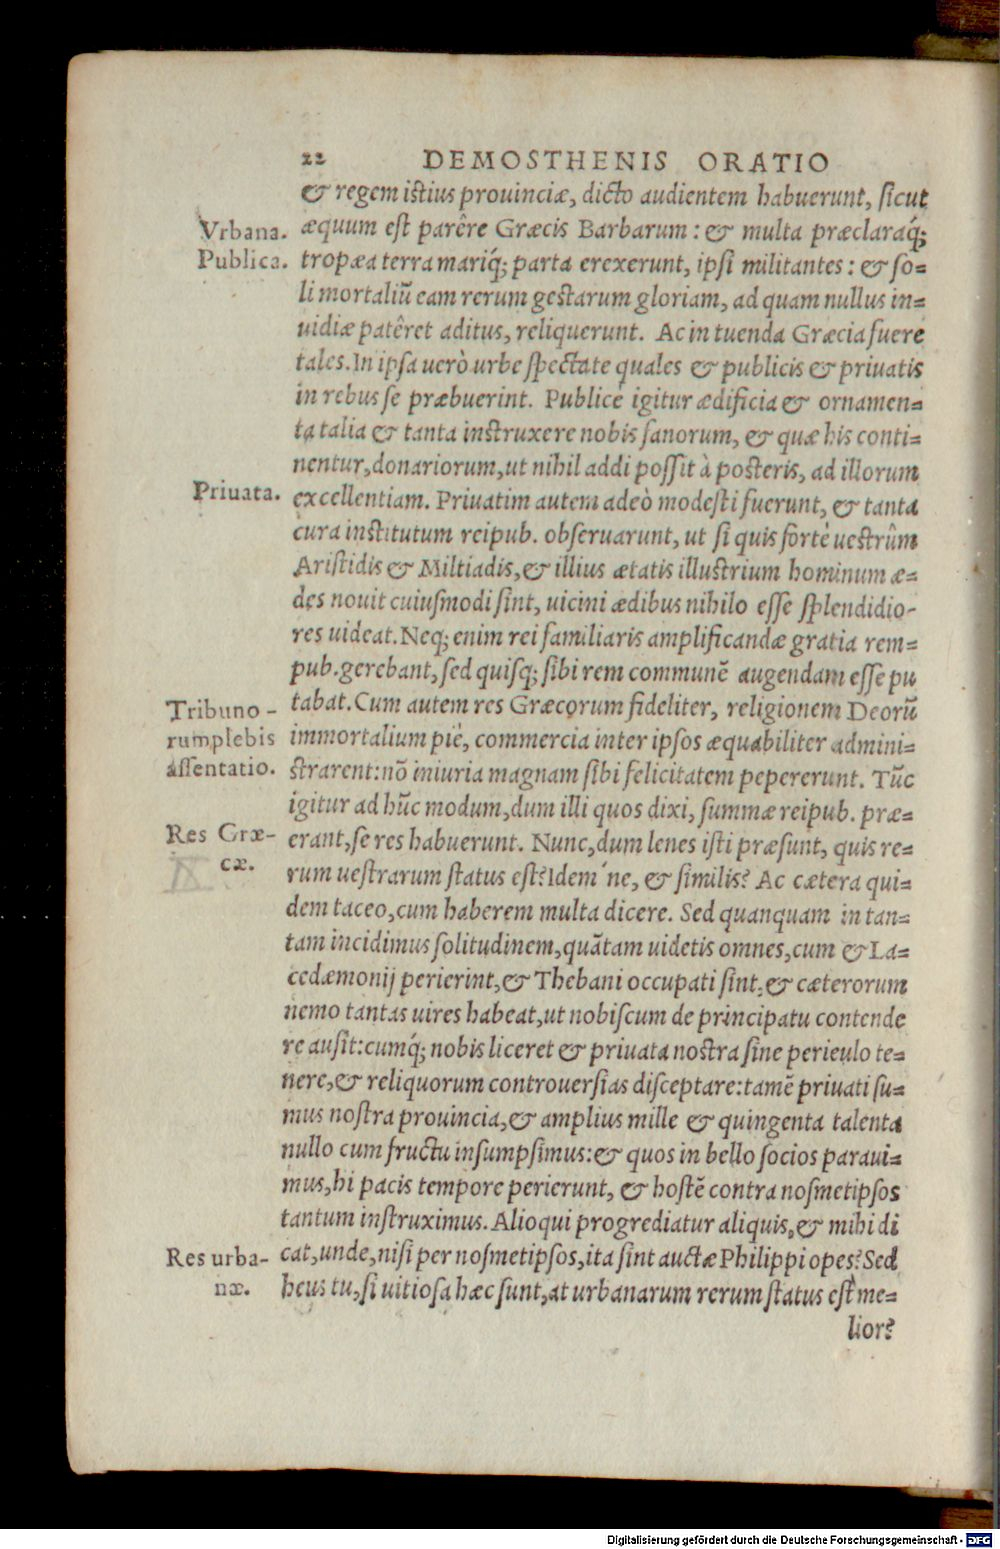 22 DEMOSTHENIS ORATIO
& regem istius prouinciæ, dicto audientem habuerunt, sicut
Vrbana.
æquum est parêre Græcis Barbarum: & multa præclaraq́;
Publica.
tropæa terra mariq́; parta erexerunt, ipsi militantes: & so=
li mortaliũ eam rerum gestarum gloriam, ad quam nullus in=
uidiæ patêret aditus, reliquerunt. Ac in tuenda Græcia fuere
tales. In ipsa uerò urbe spectate quales & publicis & priuatis
in rebus se præbuerint. Publicè igitur ædificia & ornamen=
ta talia & tanta instruxere nobis fanorum, & quæ his conti=
nentur, donariorum, ut nihil addi possit à posteris, ad illorum
Priuata.
excellentiam. Priuatim autem adeò modesti fuerunt, & tanta
cura institutum reipub. obseruarunt, ut si quis fortè uestrûm
Aristidis & Miltiadis, & illius ætatis illustrium hominum æ=
des nouit cuiusmodi sint, uicini ædibus nihilo esse splendidio-
res uideat. Neq; enim rei familiaris amplificandæ gratia rem=
pub. gerebant, sed quisq; sibi rem communẽ augendam esse pu
Tribuno-
tabat. Cum autem res Græcorum fideliter, religionem Deorũ
rum plebis
immortalium piè, commercia inter ipsos æquabiliter admini=
assentatio.
strarent: nõ iniuria magnam sibi felicitatem pepererunt. Tũc
igitur ad hũc modum, dum illi quos dixi, summæ reipub. præ=
Res Græ-
erant, se res habuerunt. Nunc, dum lenes isti præsunt, quis re=
cæ.
rum uestrarum status est? Idem'ne, & similis? Ac cætera qui=
dem taceo, cum haberem multa dicere. Sed quanquam in tan=
tam incidimus solitudinem, quãtam uidetis omnes, cum & La=
cedæmonij perierint, & Thebani occupati sint, & cæterorum
nemo tantas uires habeat, ut nobiscum de principatu contende
re ausit: cumq́; nobis liceret & priuata nostra sine periculo te=
nere, & reliquorum controuersias disceptare: tamẽ priuati su=
mus nostra prouincia, & amplius mille & quingenta talenta
nullo cum fructu insumpsimus: & quos in bello socios paraui=
mus, hi pacis tempore perierunt, & hostẽ contra nosmetipsos
tantum instruximus. Alioqui progrediatur aliquis, & mihi di
Res urba-
cat, unde, nisi per nosmetipsos, ita sint auctæ Philippi opes? Sed
næ.
heus tu, si uitiosa hæc sunt, at urbanarum rerum status est me=
lior?
Digitalisierung gefördert durch die Deutsche Forschungsgemeinschaft - DFG